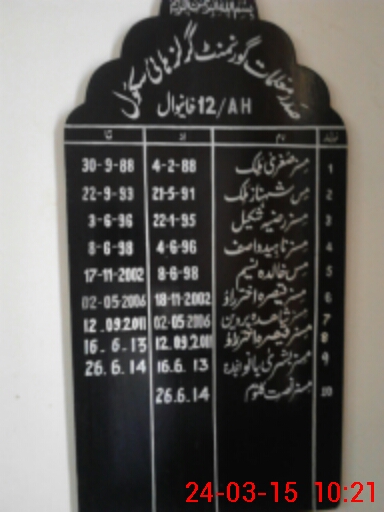 بسم اللہ الرحمن الرحیم
صدر معلمات گورنمنٹ گرلز ہائی سکول
12/AH خانیوال
نمبر نام از تا
1 مسز صغریٰ ملک 4-2-88 30-9-88
2 مس شہناز ملک 21-5-91 22-9-93
3 مسز رضیہ شکیل 22-1-95 3-6-96
4 مسز ناہید واصف 4-6-96 8-6-98
5 مس خالدہ نسیم 8-6-98 17-11-2002
6 مسز قیصرہ اختر راؤ 18-11-2002 02-05-2006
7 مسز شاہدہ پروین 02-05-2006 12.09.2011
8 مسز قیصرہ اختر راؤ 12.09.2011 16.6.13
9 مسز بشریٰ بانو 16.6.13 26.6.14
10 مسز نصرت کلثوم 26.6.14
24-03-15 10:21